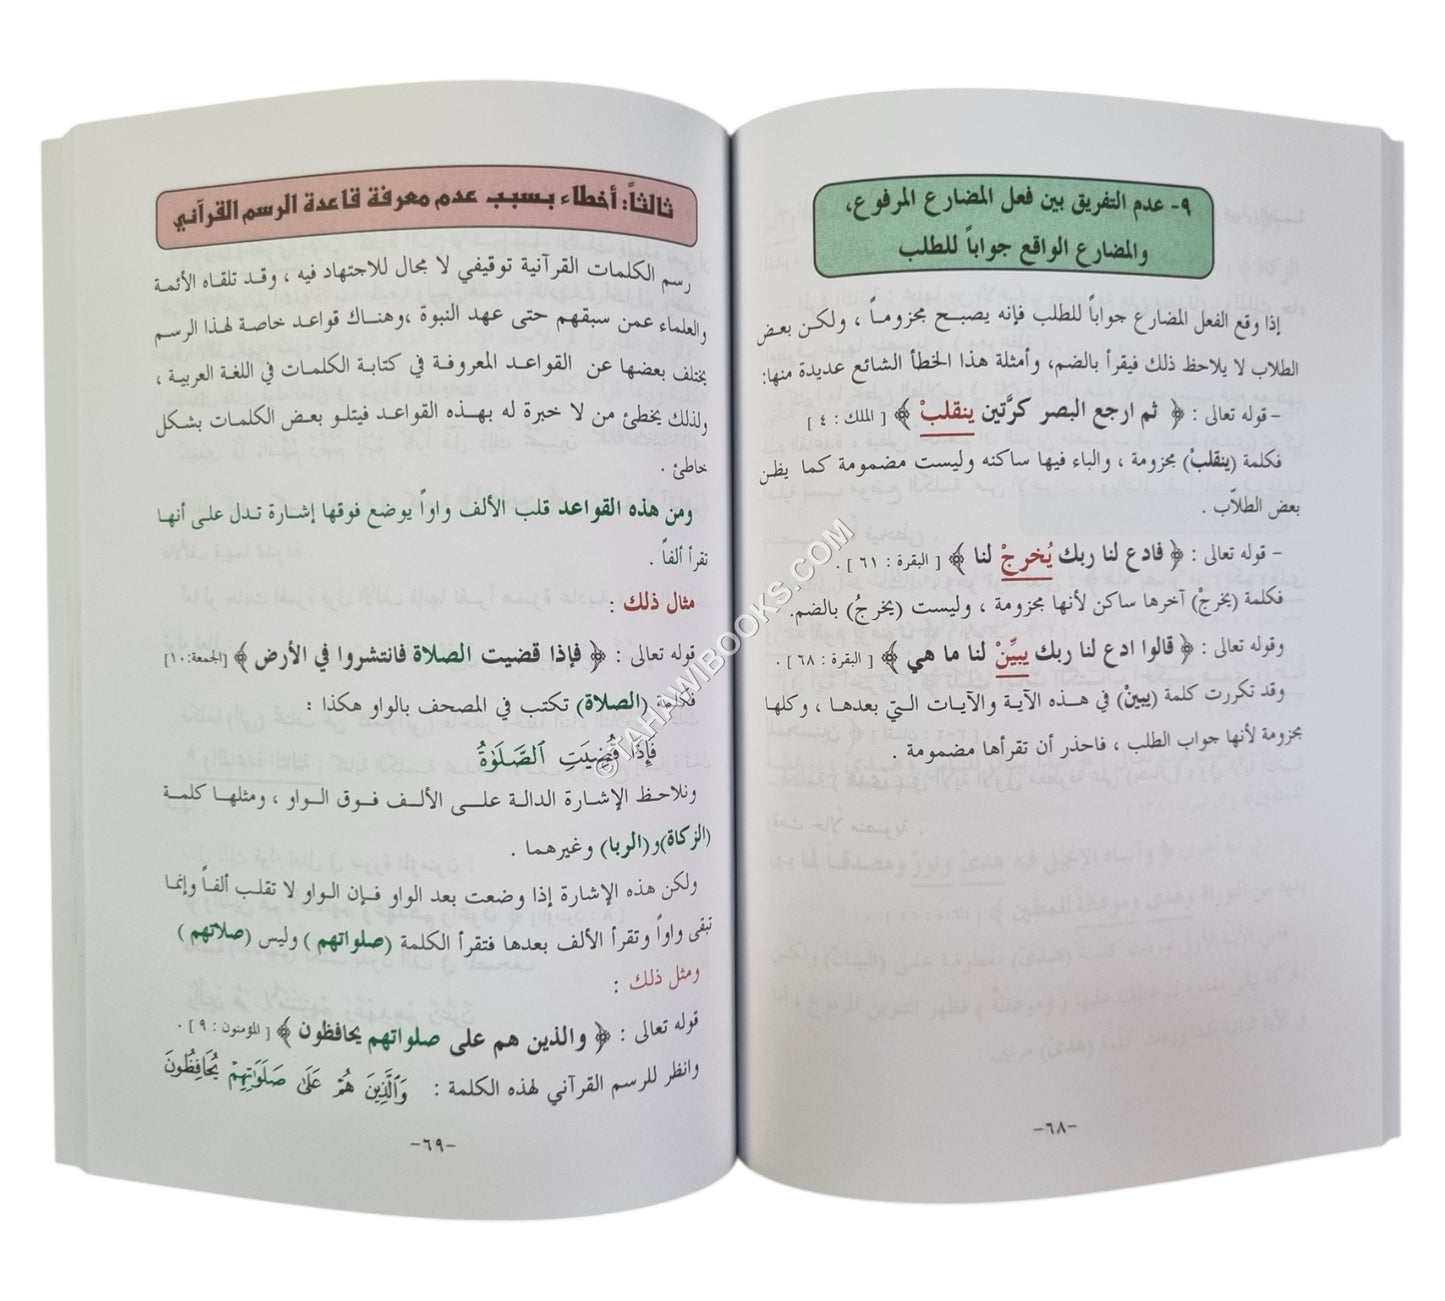 ٩- عدم التفريق بين فعل المضارع المرفوع،
والمضارع الواقع جواباً للطلب
إذا وقع الفعل المضارع جواباً للطلب فإنه يصبح مجزوماً ، ولكن بعض
الطلاب لا يلاحظ ذلك فيقرأ بالضم، وأمثلة هذا الخطأ الشائع عديدة منها:
– قوله تعالى : ﴿ ثم ارجع البصر كرَّتين ينقلبْ ﴾ [ الملك : ٤ ]
فكلمة (ينقلبْ) مجزومة ، والباء فيها ساكنه وليست مضمومة كما يظن
بعض الطلاّب .
– قوله تعالى : ﴿ فادع لنا ربك يُخرجْ لنا ﴾ [ البقرة : ٦١ ] .
فكلمة (يخرجْ) آخرها ساكن لأنها مجزومة ، وليست (يخرجُ) بالضم.
وقوله تعالى : ﴿ قالوا ادع لنا ربك يبيِّنْ لنا ما هي ﴾ [ البقرة : ٦٨ ] .
وقد تكررت كلمة (يبينْ) في هذه الآية والآيات التي بعدها ، وكلها
مجزومة لأنها جواب الطلب ، فاحذر أن تقرأها مضمومة .
-٦٨-
ثالثاً: أخطاء بسبب عدم معرفة قاعدة الرسم القرآني
رسم الكلمات القرآنية توقيفي لا مجال للاجتهاد فيه ، وقد تلقاه الأئمة
والعلماء عمن سبقهم حتى عهد النبوة ،وهناك قواعد خاصة لهذا الرسم
يختلف بعضها عن القواعد المعروفة في كتابة الكلمات في اللغة العربية ،
ولذلك يخطئ من لا خبرة له بهذه القواعد فيتلو بعض الكلمات بشكل
خاطئ .
ومن هذه القواعد قلب الألف واواً يوضع فوقها إشارة تدل على أنها
تقرأ ألفاً .
مثال ذلك :
قوله تعالى : ﴿ فإذا قضيت الصلاة فانتشروا في الأرض ﴾ [الجمعة:١٠]
فكلمة (الصلاة) تكتب في المصحف بالواو هكذا :
فَإِذَا قُضِيَتِ ٱلصَّلَوٰةُ
ونلاحظ الإشارة الدالة على الألف فوق الواو ، ومثلها كلمة
(الزكاة)و(الربا) وغيرهما .
ولكن هذه الإشارة إذا وضعت بعد الواو فإن الواو لا تقلب ألفاً وإنما
تبقى واواً وتقرأ الألف بعدها فتقرأ الكلمة (صلواتهم ) وليس (صلاتهم )
ومثل ذلك :
قوله تعالى : ﴿ والذين هم على صلواتهم يحافظون ﴾ [ المؤمنون : ٩ ] .
وانظر للرسم القرآني لهذه الكلمة : وَٱلَّذِينَ هُمْ عَلَىٰ صَلَوَٰتِهِمْ يُحَافِظُونَ
-٦٩-
© TAHAWIBOOKS.COM